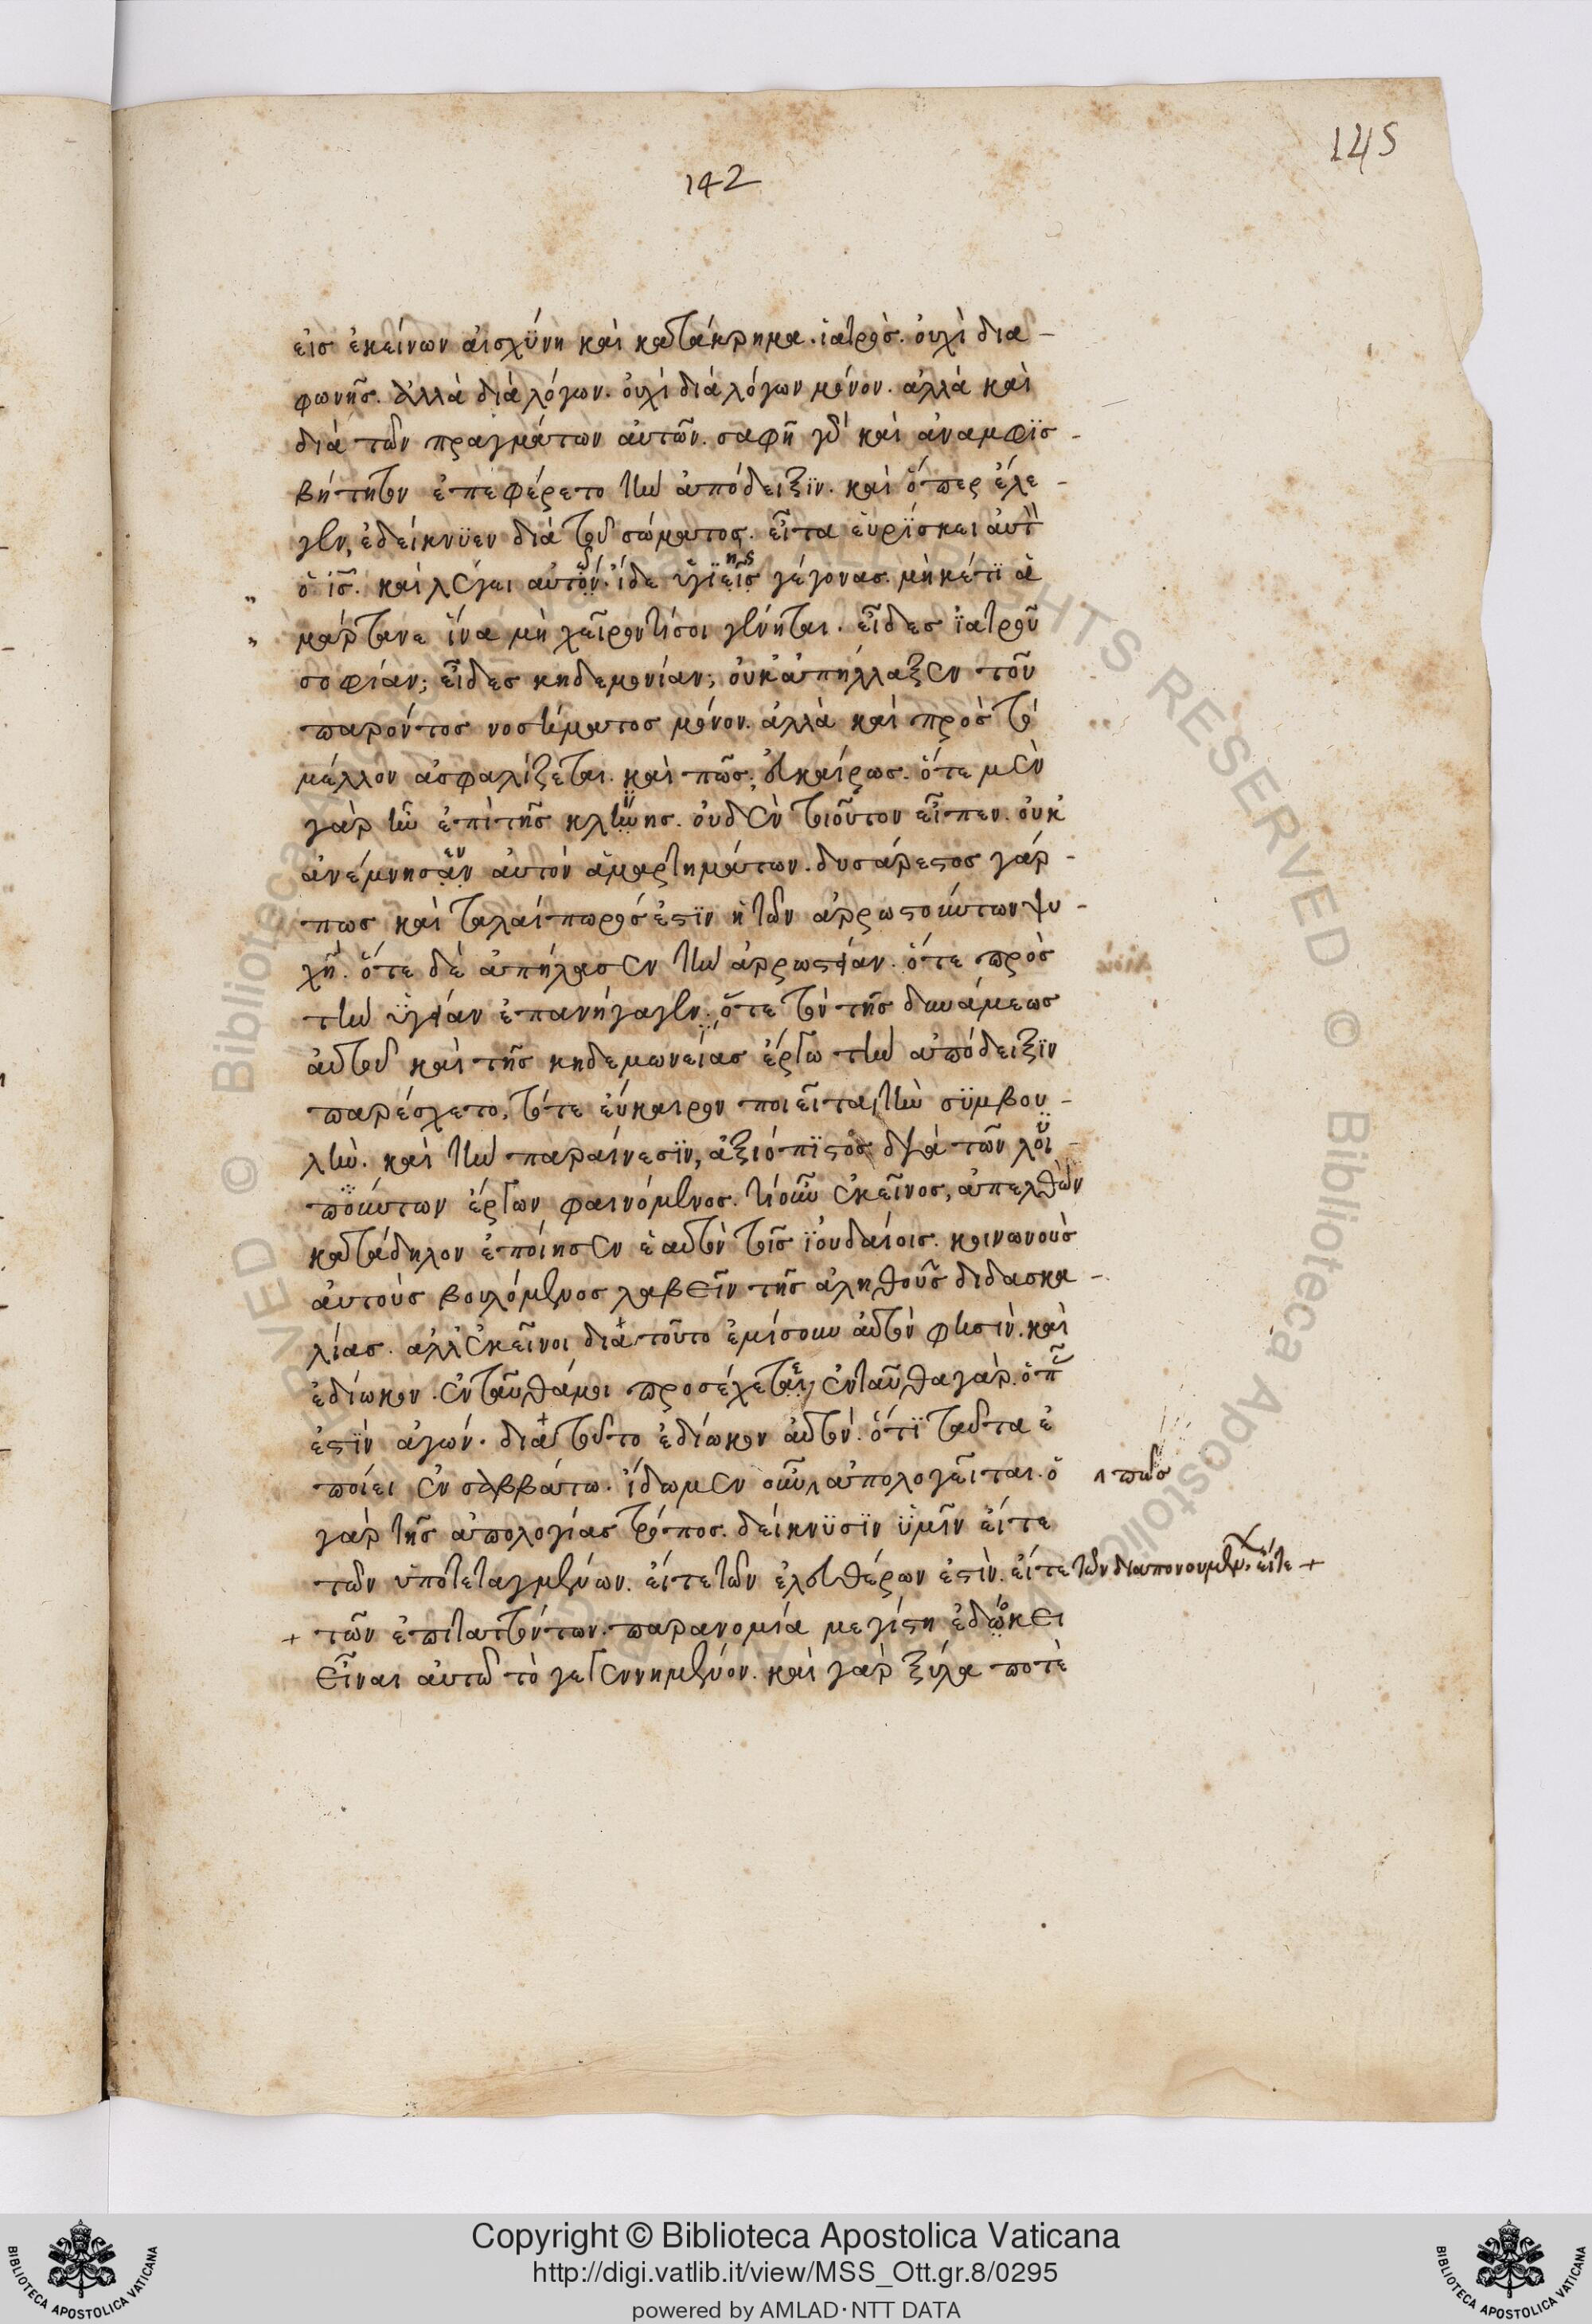 145
142
εἰσ ἐκείνων αἰσχύνη καὶ κατάκρημα. ἰατρὸσ. οὐχὶ δια-
φωνῆσ. ἀλλὰ διὰ λόγων. οὐχὶ διὰ λόγων μόνον. ἀλλὰ καὶ
διὰ τῶν πραγμάτων αὐτῶν. σαφῆ γὰρ καὶ ἀναμφϊσ-
βήτητον ἐπεφέρετο τὴν ἀπόδειξϊν. καὶ ὅπερ ἔλε-
γεν, ἐδείκνϋεν διὰ τοῦ σώματοσ. εἶτα εὑρϊσκει αὐτὸ
ὁ ἰσ. καὶ λέγει αὐτόν. ἴδε ὑγϊεῖσ γέγονασ. μὴκέτϊ ἁ
μάρτανε ἵνα μὴ χεῖρόντίσοι γένηται. εἶδεσ ϊατροῦ
σοφίαν; εἶδεσ κηδεμονίαν; οὐκ ἀπήλλαξεν τοῦ
παρόντοσ νοσήματοσ μόνον. ἀλλὰ καὶ πρὸσ τὸ
μέλλον ἀσφαλίζεται. καὶ πῶσ; εὐκαίρωσ. ὅτε μὲν
γὰρ ἦν ἐπὶ τῆσ κλήνησ. οὐδὲν τοιοῦτον εἶπεν. οὐκ
ἀνέμνησὰν αὐτὸν ἁμαρτημάτων. δυσάρεστοσ γάρ-
πωσ καὶ ταλαίπωρόσ ἐστϊν ἡ τῶν ἀρρωστούντων ψυ-
χῆ. ὅτε δὲ ἀπήλασεν τὴν ἀρρωστείαν. ὅτε πρὸσ
τὴν ϋγείαν ἐπανήγαγεν. ὅτε τὸν τῆσ δυνάμεωσ
αὐτοῦ καὶ τῆσ κηδεμωνείασ ἔργω τὴν ἀπόδειξϊν
παρέσχετο, τότε εὔκαιρον ποιεῖται τὴν σϋμβου-
λὴν. καὶ τὴν παραίνεσϊν, ἀξιόπϊστὸσ διὰ τῶν λοι-
ποὺντων ἔργων φαινόμενοσ. τί οὖν ἐκεῖνοσ, ἀπελθὼν
κατάδηλον ἐποίησεν ἑαυτὸν τοῖσ ϊουδαίοισ. κοινωνοὺσ
αὐτοὺσ βουλόμενοσ λαβεῖν τῆσ ἀληθοῦσ διδασκα-
λίασ. ἀλλ' ἐκεῖνοι διὰ τοῦτο ἐμίσουν αὐτὸν φησὶν. καὶ
ἐδίωκον. ἐνταῦθάμοι προσέχεται, ἐνταῦθα γὰρ. ὁ π
ἐστϊν ἀγών. διὰ τοῦτο ἐδίωκον αὐτὸν. ὅτϊ ταῦτα ἐ
ποίει ἐν σαββάτω. ἴδωμεν οὖν ἀπολογεῖται. ὁ πῶσ
γὰρ τῆσ ἀπολογίασ τρόποσ. δείκνϋσϊν ϋμῖν εἴτε
τῶν ὑποτεταγμένων. εἴτε τῶν ἐλευθέρων ἐστὶν. εἴτε τῶν διαπονουμέν. εἴτε +
+ τῶν ἐπιταττόντων. παρανομία μεγίστη ἐδώκει
εἶναι αὐτῶ τὸ γεγεννημένον. καὶ γὰρ ξύλα ποτὲ
Copyright © Biblioteca Apostolica Vaticana
http://digi.vatlib.it/view/MSS_Ott.gr.8/0295
powered by AMLAD·NTT DATA